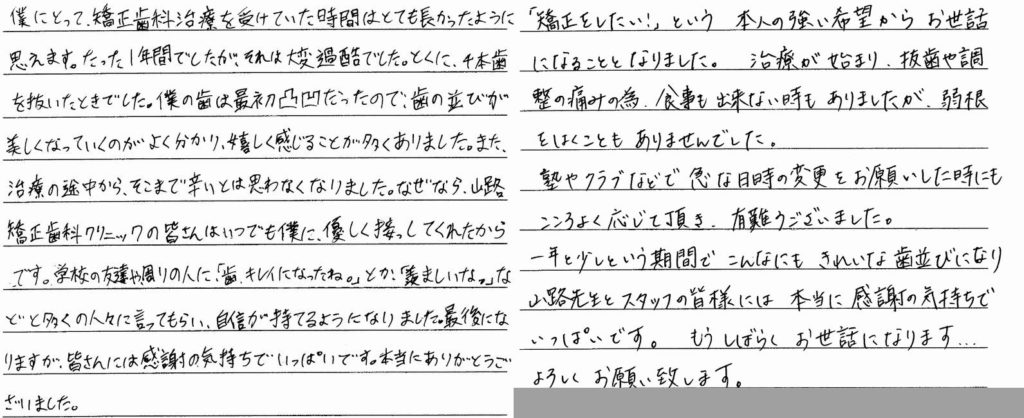 僕にとって、矯正歯科治療を受けていた時間はとても長かったように
思えます。たった1年間でしたが、それは大変過酷でした。とくに、4本歯
を抜いたときでした。僕の歯は最初凸凹だったので、歯の並びが
美しくなっていくのがよく分かり、嬉しく感じることが多くありました。また、
治療の途中から、そこまで辛いとは思わなくなりました。なぜなら、山路
矯正歯科クリニックの皆さんはいつでも僕に、優しく接っしてくれたから
です。学校の友達や周りの人に、「歯、キレイになったね。」とか、「羨ましいな。」な
どと多くの人々に言ってもらい、自信が持てるようになりました。最後にな
りますが、皆さんには感謝の気持ちでいっぱいです。本当にありがとうご
ざいました。
「矯正をしたい！」という 本人の強い希望から お世話
になることとなりました。 治療が始まり、抜歯や調
整の痛みの為、食事も出来ない時もありましたが、弱根
をはくことも ありませんでした。
塾やクラブなどで 急な日時の変更をお願いした時にも
こころよく応じて頂き、有難うございました。
一年と少しという期間で こんなにも きれいな歯並びになり
山路先生とスタッフの皆様には 本当に感謝の気持ちで
いっぱいです。 もうしばらく お世話になります…
よろしく お願い致します。